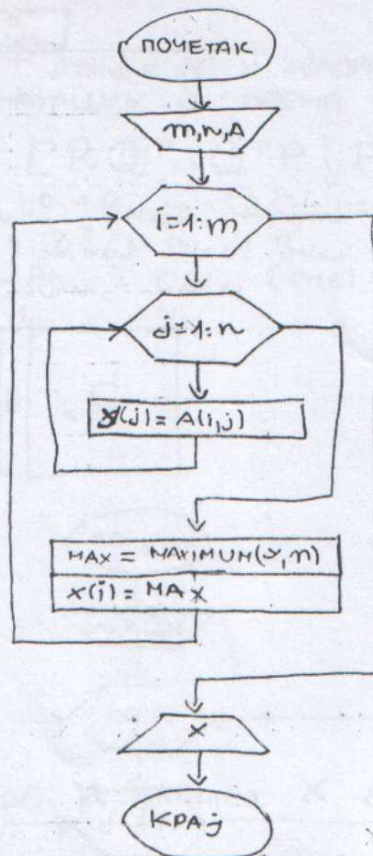 ПОЧЕТАК
m,n,A
i=1:m
j=1:n
y(j)=A(i,j)
MAX = MAXIMUM(y,n)
x(i)=MAX
x
КРАЈ